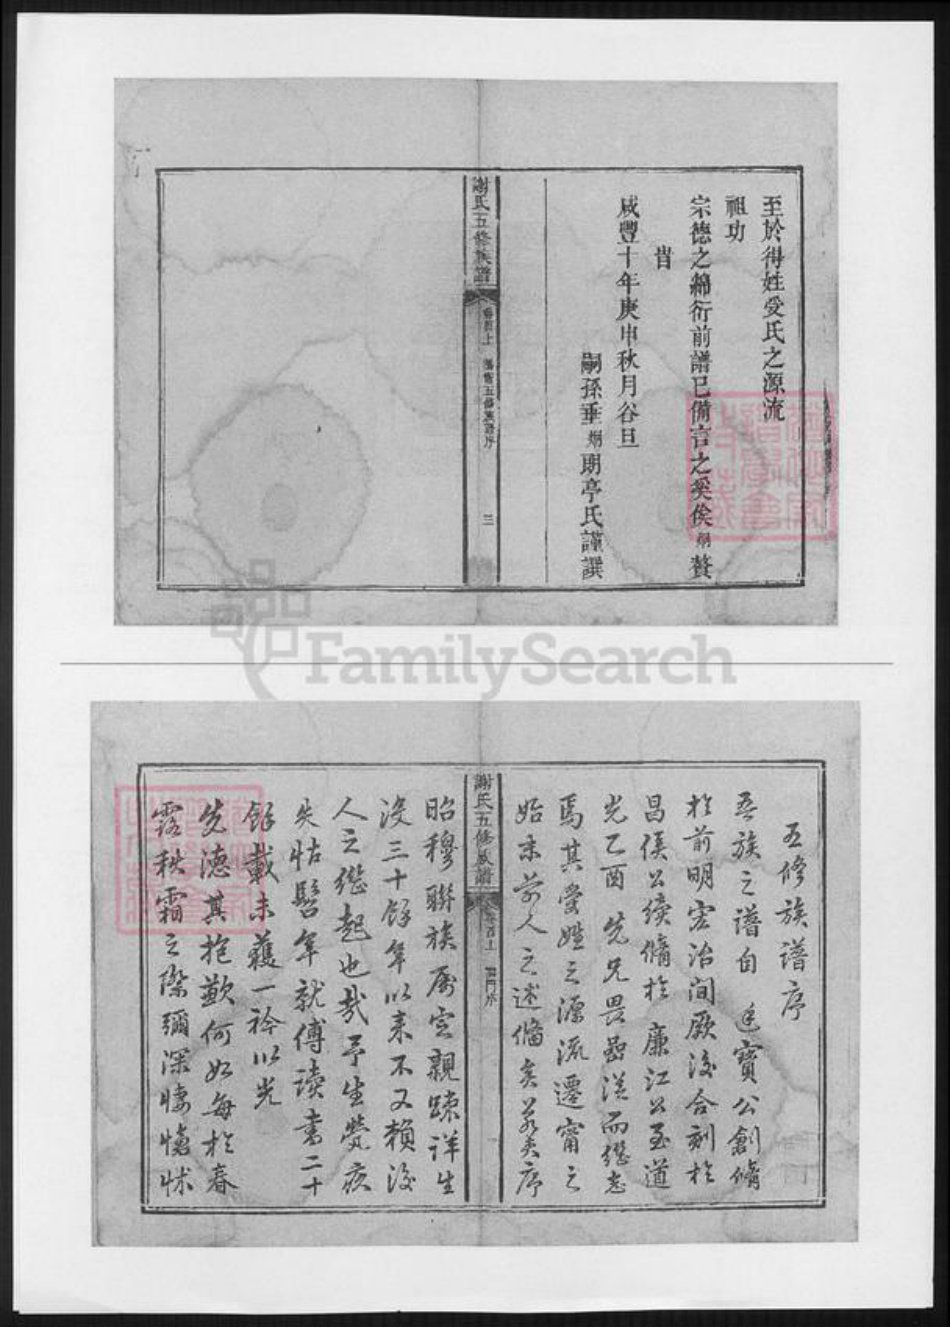 至於得姓受氏之源流
祖功
宗德之綿衍前譜已備言之奚俟烱贅
旹
咸豐十年庚申秋月谷旦
嗣孫垂烱朗亭氏謹譔
謝氏五修族譜
卷首上
五修族譜序
三
FamilySearch
五修族譜序
吾族之譜自廷寶公創脩
於前明宏治間厥後合刻於
昌侯公續脩於廉江公至道
光乙酉先兄畏嵒從而繼志
焉其受姓之源流遷甯之
始末前人之述備矣若夫序
謝氏五修族譜
卷首上
昭穆聯族屬定親疎詳生
沒三十餘年以來不又賴後
人之繼起也哉予生煢疚
失怙髫年就傅讀書二十
餘載未獲一衿以光
先德其抱歉何如每於春
露秋霜之際彌深悽愴怵